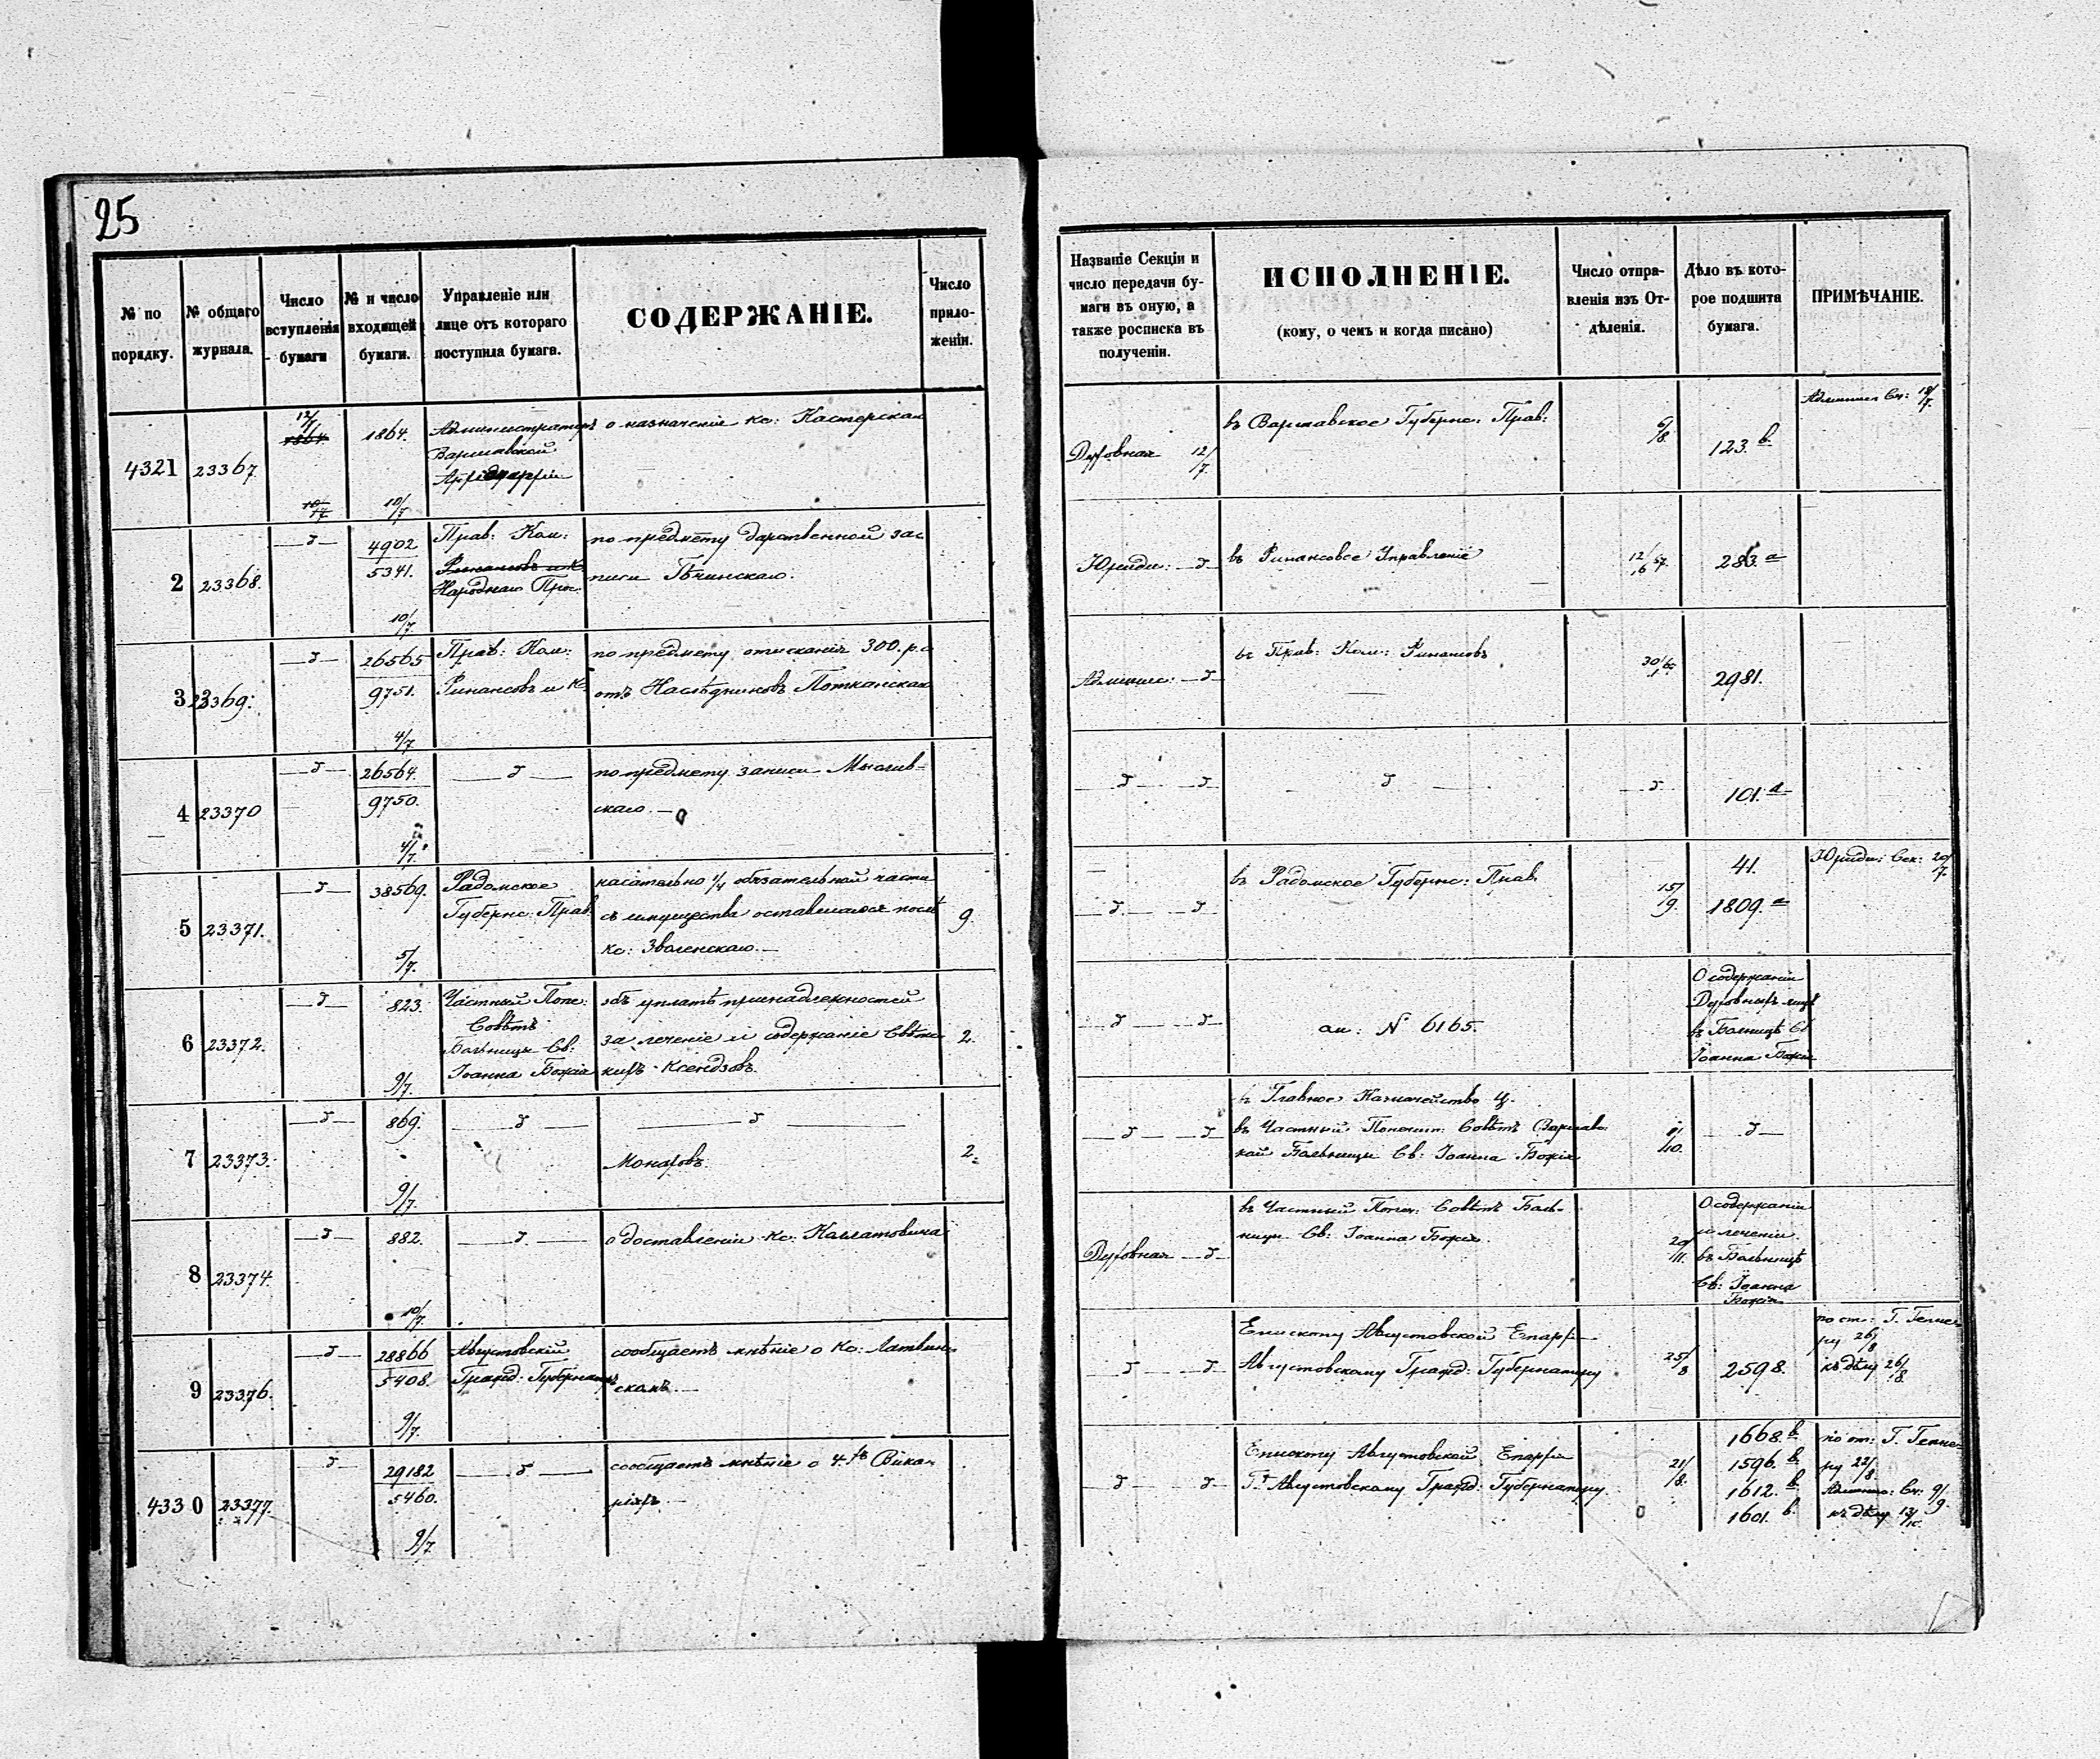 25
№ по порядку.
№ общаго журнала.
Число вступленія бумаги
№ и число входящей бумаги.
Управленіе или лице отъ котораго поступила бумага.
СОДЕРЖАНІЕ.
Число приложеній.
Названіе Секціи и число передачи бумаги въ оную, а также росписка въ полученіи.
ИСПОЛНЕНІЕ.
(кому, о чемъ и когда писано)
Число отправленія изъ Отдѣленія.
Дѣло въ которое подшита бумага.
ПРИМѢЧАНІЕ.
4321 23367 12/7 1864. 10/7
Администраторъ
Варшавской
о назначеніи кс:
Духовная 12/7
въ Варшавское Губернс: Прав:
6/8
123. в.
2 23368. 4902
5341. 10/7
Прав: Ком:
Народнаго Прос:
по предмету дарственной за-
писи
Юриди:
въ Финансовое Управленіе
283. а
3 23369. 26565
9751. 4/7
Прав: Ком:
Финансовъ и К.
по предмету отысканія 300. р. с
отъ Наслѣдниковъ
Админис:
въ Прав: Ком: Финансовъ
2981.
4 23370 26564.
9750. 4/7.
по предмету записи Мыслив-
скаго.
101. а
5 23371. 38569. 5/7.
Радомское
Губернс: Прав:
касательно 1/4 обязательной части
съ имущества оставшагося послѣ
кс: Зволенскаго.
9.
въ Радомское Губернс: Прав.
15/9.
41.
1809. а
Юриди: Сек: 20/7.
6 23372. 823. 9/7.
Частный Попе:
Совѣтъ
Больницы Св:
Іоанна Божія
объ уплатѣ принадлежностей
за леченіе и содержаніе Свѣтс-
кихъ Ксендзовъ.
2.
ап: № 6165.
О содержаніи
Духовныхъ лицъ
въ Больницѣ Св
Іоанна Божія
7 23373. 869. 9/7.
Монаховъ.
2.
въ Главное Казначейство Ц.
въ Частный Попечит: Совѣтъ Варшавс-
кой Больницы Св: Іоанна Божія
8 23374. 882. 10/7.
о доставленіи кс:
Духовная
въ Частный Попеч: Совѣтъ Боль-
ницы Св: Іоанна Божія.
20/11.
О содержаніи
и леченіи
въ Больницѣ
Св: Іоанна
Божія
9 23376. 28866
5408. 9/7.
Августовскій
Гражд: Губернаторъ
сообщаетъ мнѣніе о Кс:
Епископу Августовской Епархіи
Августовскому Гражд: Губернатору
25/8
2598.
по от: Г. Генне-
ру 26/8
къ дѣлу 26/8.
4330 23377. 29182
5460. 9/7.
сообщаетъ мнѣніе о 4.хъ Вика-
ріяхъ.
Епископу Августовской Епархіи
Г. Августовскому Гражд: Губернатору.
21/8.
1668. в.
1596. в.
1612. в.
1601. в.
по от: Г. Генне-
ру 22/8.
Админис: Сек: 9/9.
къ дѣлу 13/10.